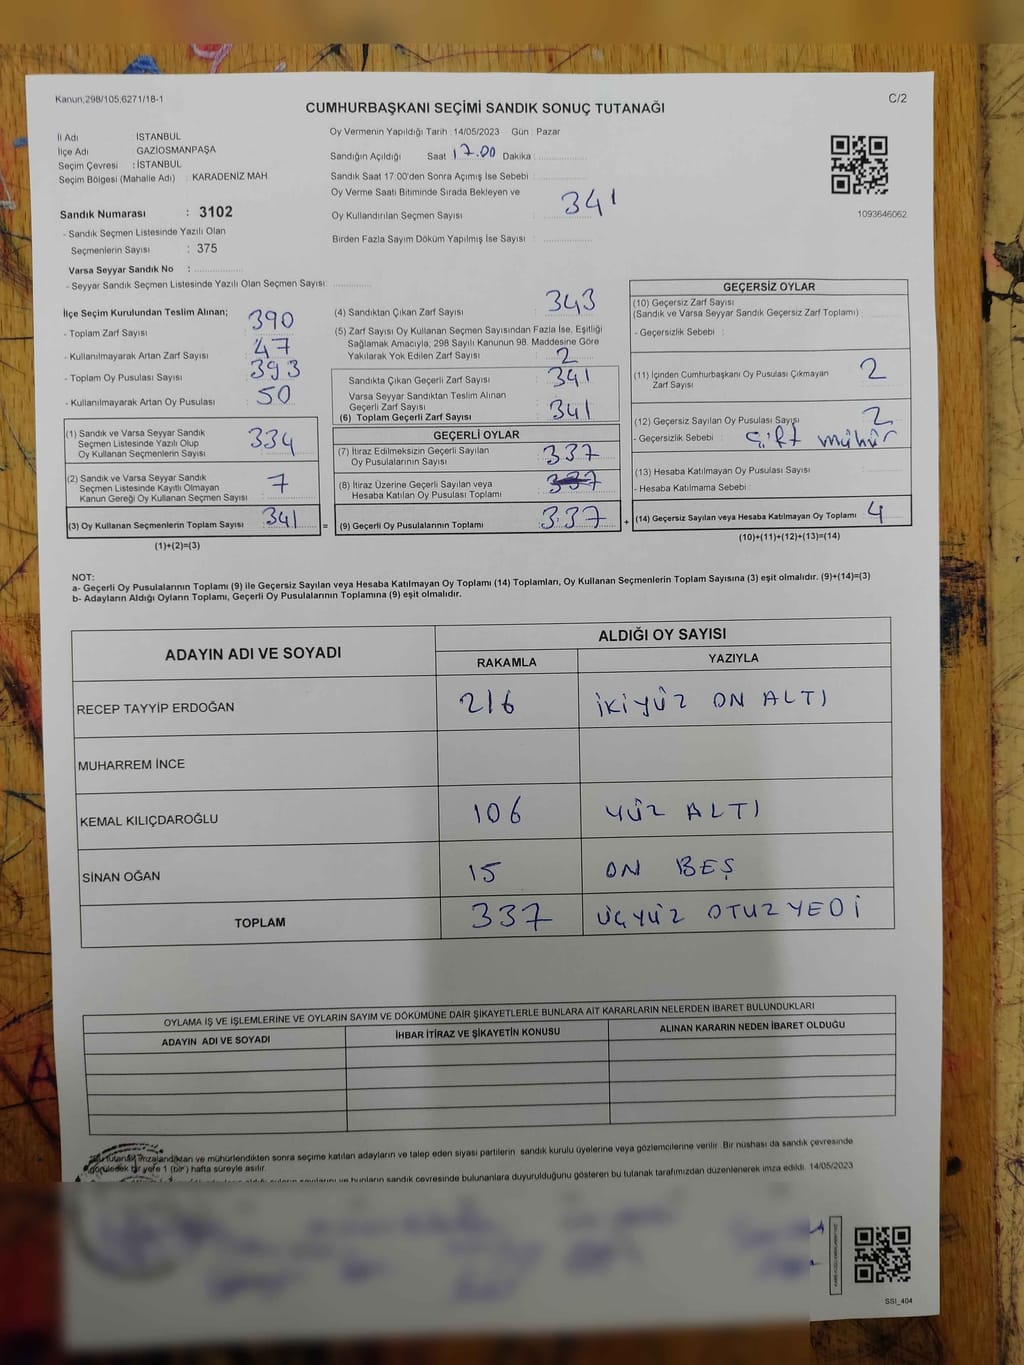 Kanun;298/105;6271/18-1
C/2
CUMHURBAŞKANI SEÇİMİ SANDIK SONUÇ TUTANAĞI
İl Adı İSTANBUL
İlçe Adı GAZİOSMANPAŞA
Seçim Çevresi : İSTANBUL
Seçim Bölgesi (Mahalle Adı) : KARADENİZ MAH.
Sandık Numarası : 3102
- Sandık Seçmen Listesinde Yazılı Olan
Seçmenlerin Sayısı : 375
Varsa Seyyar Sandık No :
- Seyyar Sandık Seçmen Listesinde Yazılı Olan Seçmen Sayısı:
Oy Vermenin Yapıldığı Tarih : 14/05/2023 Gün : Pazar
Sandığın Açıldığı Saat 17.00 Dakika :
Sandık Saat 17:00'den Sonra Açımış İse Sebebi :
Oy Verme Saati Bitiminde Sırada Bekleyen ve
Oy Kullandırılan Seçmen Sayısı : 341
Birden Fazla Sayım Döküm Yapılmış İse Sayısı :
1093646062
İlçe Seçim Kurulundan Teslim Alınan;
- Toplam Zarf Sayısı : 390
- Kullanılmayarak Artan Zarf Sayısı : 47
- Toplam Oy Pusulası Sayısı : 393
- Kullanılmayarak Artan Oy Pusulası : 50
(1) Sandık ve Varsa Seyyar Sandık
Seçmen Listesinde Yazılı Olup
Oy Kullanan Seçmenlerin Sayısı 334
(2) Sandık ve Varsa Seyyar Sandık
Seçmen Listesinde Kayıtlı Olmayan
Kanun Gereği Oy Kullanan Seçmen Sayısı 7
(3) Oy Kullanan Seçmenlerin Toplam Sayısı 341 =
(1)+(2)=(3)
(4) Sandıktan Çıkan Zarf Sayısı : 343
(5) Zarf Sayısı Oy Kullanan Seçmen Sayısından Fazla İse, Eşitliği
Sağlamak Amacıyla, 298 Sayılı Kanunun 98. Maddesine Göre
Yakılarak Yok Edilen Zarf Sayısı : 2
Sandıkta Çıkan Geçerli Zarf Sayısı : 341
Varsa Seyyar Sandıktan Teslim Alınan
Geçerli Zarf Sayısı
(6) Toplam Geçerli Zarf Sayısı : 341
GEÇERLİ OYLAR
(7) İtiraz Edilmeksizin Geçerli Sayılan
Oy Pusulalarının Sayısı : 337
(8) İtiraz Üzerine Geçerli Sayılan veya
Hesaba Katılan Oy Pusulası Toplamı
(9) Geçerli Oy Pusulalarının Toplamı : 337 +
GEÇERSİZ OYLAR
(10) Geçersiz Zarf Sayısı
(Sandık ve Varsa Seyyar Sandık Geçersiz Zarf Toplamı)
- Geçersizlik Sebebi :
(11) İçinden Cumhurbaşkanı Oy Pusulası Çıkmayan
Zarf Sayısı 2
(12) Geçersiz Sayılan Oy Pusulası Sayısı 2
- Geçersizlik Sebebi : Çift mühür
(13) Hesaba Katılmayan Oy Pusulası Sayısı
- Hesaba Katılmama Sebebi :
(14) Geçersiz Sayılan veya Hesaba Katılmayan Oy Toplamı 4
(10)+(11)+(12)+(13)=(14)
NOT:
a- Geçerli Oy Pusulalarının Toplamı (9) ile Geçersiz Sayılan veya Hesaba Katılmayan Oy Toplamı (14) Toplamları, Oy Kullanan Seçmenlerin Toplam Sayısına (3) eşit olmalıdır. (9)+(14)=(3)
b- Adayların Aldığı Oyların Toplamı, Geçerli Oy Pusulalarının Toplamına (9) eşit olmalıdır.
ADAYIN ADI VE SOYADI
ALDIĞI OY SAYISI
RAKAMLA YAZIYLA
RECEP TAYYİP ERDOĞAN 216 İKİYÜZ ON ALTI
MUHARREM İNCE
KEMAL KILIÇDAROĞLU 106 YÜZ ALTI
SİNAN OĞAN 15 ON BEŞ
TOPLAM 337 ÜÇYÜZ OTUZ YEDİ
OYLAMA İŞ VE İŞLEMLERİNE VE OYLARIN SAYIM VE DÖKÜMÜNE DAİR ŞİKAYETLERLE BUNLARA AİT KARARLARIN NELERDEN İBARET BULUNDUKLARI
ADAYIN ADI VE SOYADI İHBAR İTİRAZ VE ŞİKAYETİN KONUSU ALINAN KARARIN NEDEN İBARET OLDUĞU
Bu tutanak imzalandıktan ve mühürlendikten sonra seçime katılan adayların ve talep eden siyasi partilerin sandık kurulu üyelerine veya gözlemcilerine verilir. Bir nüshası da sandık çevresinde
görülecek bir yere 1 (bir) hafta süreyle asılır.
sandık çevresinde bulunanlara duyurulduğunu gösteren bu tutanak tarafımızdan düzenlenerek imza edildi. 14/05/2023
SSI_404